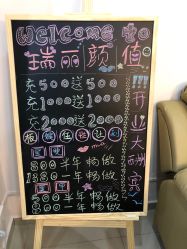 Welcome to
瑞丽颜值
充500送500
充1000送1000
充2000送2000
880半年畅做
1880一年畅做
500半年畅做
800一年畅做
!!!开业大酬宾